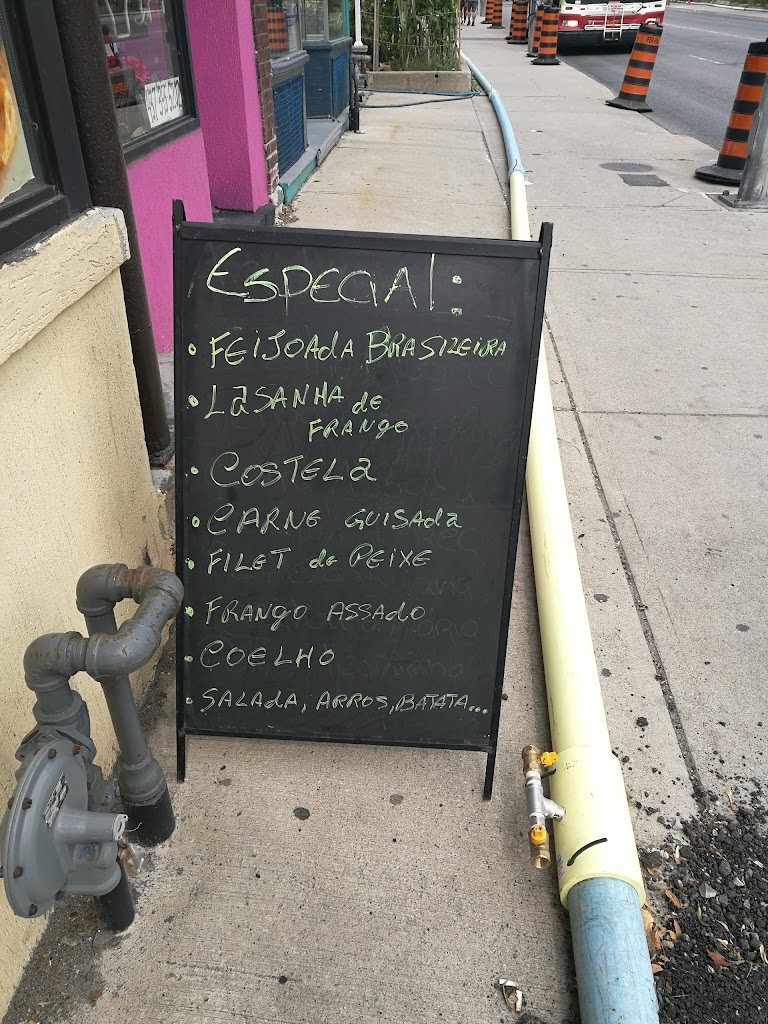 ESPECIAL:
• FEIJOADA BRASILEIRA
• LASANHA de
FRANGO
• COSTELA
• CARNE GUISADA
• FILET de PEIXE
• FRANGO ASSADO
• COELHO
• SALADA, ARROS, BATATA...